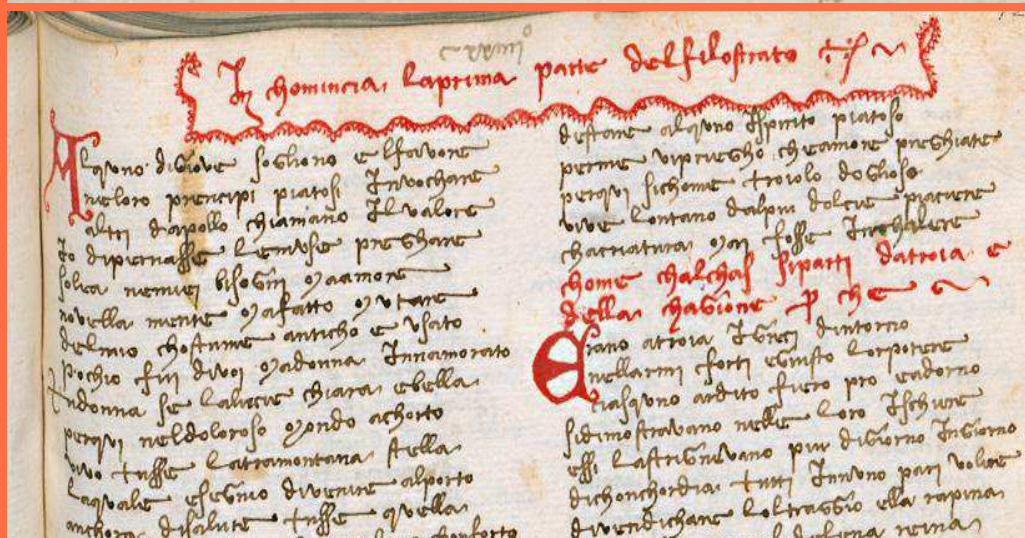 In chomincia laprima parte delfilostrato
Alquno digiove sogliono elfavore
neloro principi piatosi Invochare
altri dapollo chiamano Ilvalore
Io dipernasse lemuse preghare
solea nemiei bisogni Maamore
novella mente Mafatto Mutare
delmio chostume anticho e usato
pochio fui divoi Madonna Innamorato
Tudonna se laluce chiara ebella
perqui neldoloroso Mondo achorto
vivo tusse latramontana stella
laquale eseguo divenire alporto
anchora disalute tusse quella
destare alquno Ispirito piatoso
perme vipriegho cheamore preghiate
perqui sichome troiolo doglioso
vive lontano dalpiu dolcie piaciere
chacriatura Mai fosse Inchalere
chome chalchas siparti datroia e
della chagione p che
Erano atroia Igreci dintorno
nellarmi forti
ciasquno ardito fiero pro eadorno
sidimostravano nelle loro Ischiere
essi lastrignevano pur digiorno Ingiorno
dichonchordia tutti Innuno pari volere
divendichare loltraggio ella rapina
reina